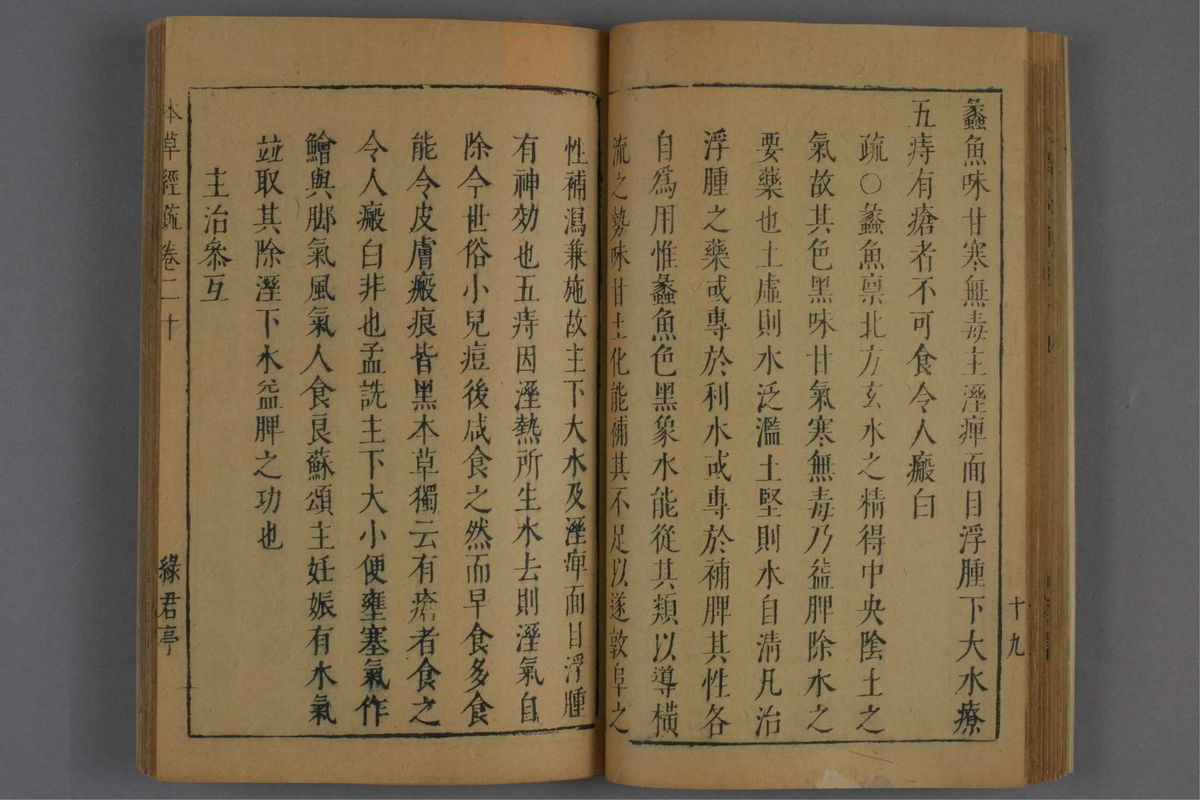 蠡魚味甘寒無毒主溼痺面目浮腫下大水療
五痔有瘡者不可食令人瘢白
疏○蠡魚稟北方玄水之精得中央陰土之
氣故其色黑味甘氣寒無毒乃益脾除水之
要藥也土虛則水泛濫土堅則水自清凡治
浮腫之藥或專於利水或專於補脾其性各
自爲用惟蠡魚色黑象水能從其類以導橫
流之勢味甘土化能補其不足以遂敦阜之
十九
性補瀉兼施故主下大水及溼痺面目浮腫
有神効也五痔因溼熱所生水去則溼氣自
除今世俗小兒痘後咸食之然而早食多食
能令皮膚瘢痕皆黑本草獨云有瘡者食之
令人瘢白非也孟詵主下大小便壅塞氣作
鱠與脚氣風氣人食良蘇頌主妊娠有水氣
竝取其除溼下水益脾之功也
主治叅互
本草經疏卷二十
綠君亭